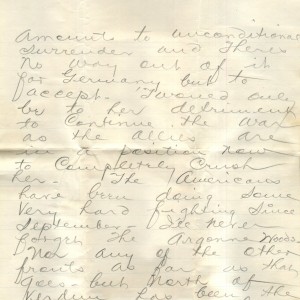 amounts to unconditional
surrender and theres
no way out of it
for Germany but to
accept. Twould only
be to her detriment
to continue the war
as the Allies are
in a position now
to completely crush
her. The Americans
have been doing some
very hard fighting since
September. I'll never
forget the Argonne Woods
Nor any of the other
fronts as far as that
goes- but North of
Verdun has been the